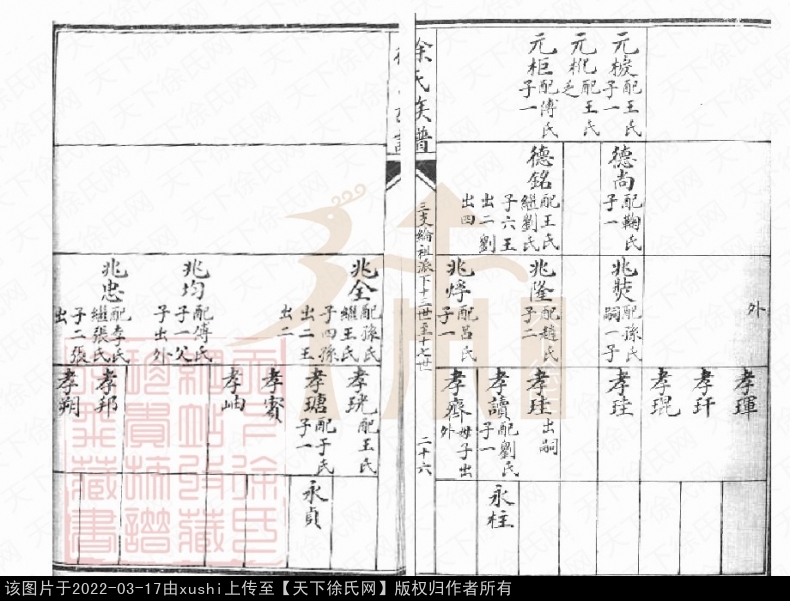 元棱配王氏
子一
元樅配王氏
乏
元柜配傅氏
子一
徐氏族譜
德尚配鞠氏
子一
德銘配王氏
繼劉氏
子六王
出二劉
出四
三支綸祖派下十三世至十七世
二十六
外
兆奬配孫氏
嗣一子
兆隆配趙氏
子二
兆㷷配呂氏
子一
兆全配孫氏
繼王氏
子四孫
出二王
出二
兆均配傅氏
子一父
子出外
兆忠配李氏
繼張氏
子二張
出
孝琿
孝玕
孝琨
孝珪
孝珪出嗣
孝讀配劉氏
子一
孝齊母子出
外
孝珖配王氏
孝瑭配于氏
子一
孝賓
孝岫
孝邦
孝朔
永柱
永貞
该图片于2022-03-17由xushi上传至【天下徐氏网】版权归作者所有